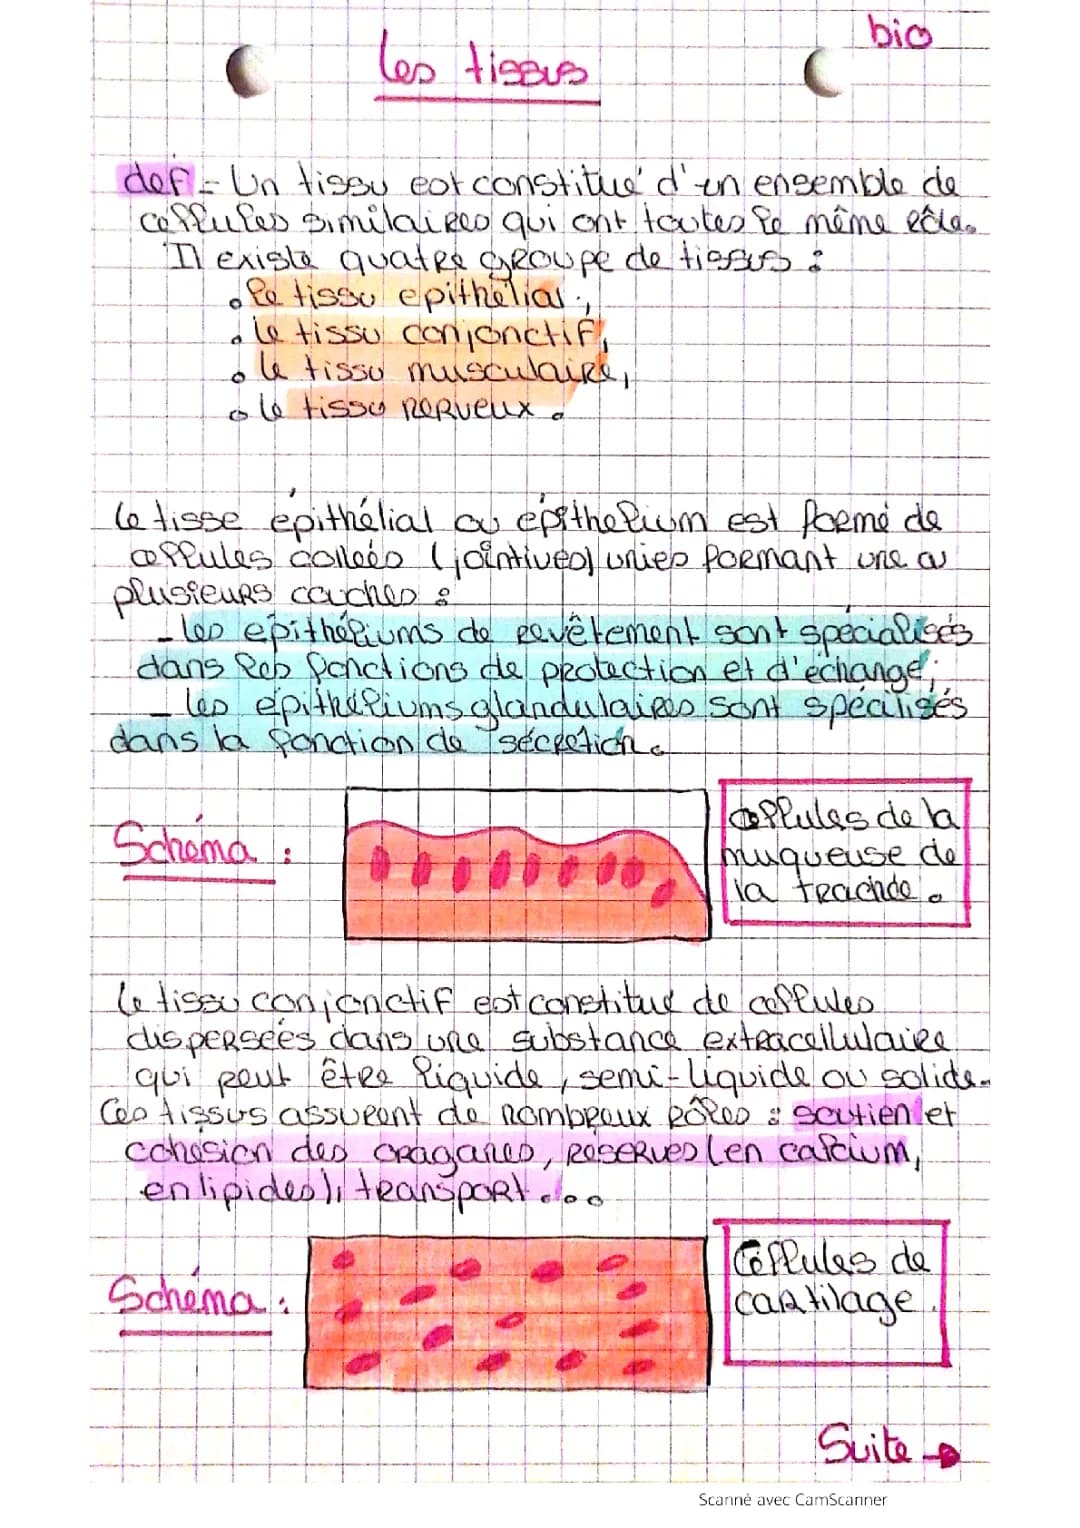 bio
Les tissus
def - Un tissu est constitué d'un ensemble de
cellules similaires qui ont toutes le même rôle.
Il existe quatre groupe de tissus :
• le tissu épithélial ;,
• le tissu conjonctif,
• le tissu musculaire,
• le tissu nerveux.
Le tisse épithélial ou épithelium est formé de
cellules collées (jointives) unies formant une ou
plusieurs couches :
- les épithéliums de revêtement sont spécialisés
dans les fonctions de protection et d'échange ;
- les épithéliums glandulaires sont spécilisés
dans la fonction de sécretion.
Schéma :
cellules de la
muqueuse de
la trachée.
Le tissu conjonctif est constitué de cellules
dispersées dans une substance extracellulaire
qui peut être liquide, semi-liquide ou solide.
Ces tissus assurent de nombreux rôles : soutien et
cohésion des oraganes, réserves (en calcium,
en lipides), transport...
Schéma :
Cellules de
cartilage.
Suite →
Scanné avec CamScanner